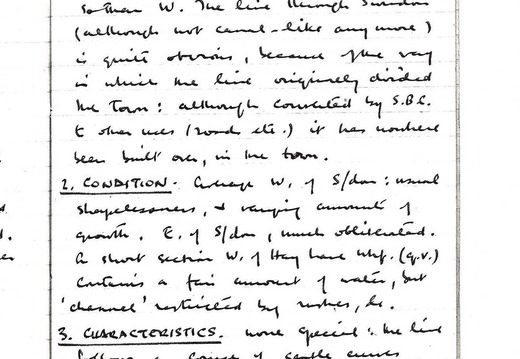 so than W. The line through Swindon
(although not canal-like any more)
is quite obvious, because of the way
in which the line originally divided
the Town: although converted by S.B.C.
to other uses (roads etc.) it has nowhere
been built over, in the town.
2. CONDITION. Average W. of S/don: usual
shapelessness, & varying amounts of
growth. E. of S/don, much obliterated.
A short section W. of Hay Lane Whf. (q.v.)
contains a fair amount of water, but
'channel' restricted by rushes, &c.
3. CHARACTERISTICS. None special: the line
follows a course of gentle curves